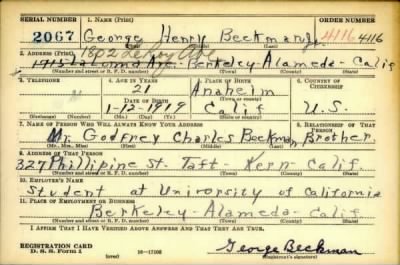 SERIAL NUMBER 1. NAME (Print) ORDER NUMBER
2067 George Henry Beckman 4116 4116
(First) (Middle) (Last)
1802 LeRoy Ave
2. ADDRESS (Print)
La Loma Ave. Berkeley Alameda - Calif
(Number and street or R. F. D. number) (Town) (County) (State)
3. TELEPHONE 4. AGE IN YEARS 5. PLACE OF BIRTH 6. COUNTRY OF CITIZENSHIP
21 Anaheim
DATE OF BIRTH (Town or county)
1-12-1919 Calif U.S.
(Exchange) (No.) (Mo.) (Day) (Yr.) (State or country)
7. NAME OF PERSON WHO WILL ALWAYS KNOW YOUR ADDRESS 8. RELATIONSHIP OF THAT PERSON
Mr. Godfrey Charles Beckman Brother
(Mr., Mrs., Miss) (First) (Middle) (Last)
9. ADDRESS OF THAT PERSON
327 Phillipine St. Taft - Kern - Calif.
(Number and street or R. F. D. number) (Town) (County) (State)
10. EMPLOYER'S NAME
Student at University of California
11. PLACE OF EMPLOYMENT OR BUSINESS
Berkeley - Alameda - Calif
(Number and street or R. F. D. number) (Town) (County) (State)
I AFFIRM THAT I HAVE VERIFIED ABOVE ANSWERS AND THAT THEY ARE TRUE.
REGISTRATION CARD George Beckman
D. S. S. Form 1 (over) (Registrant's signature)